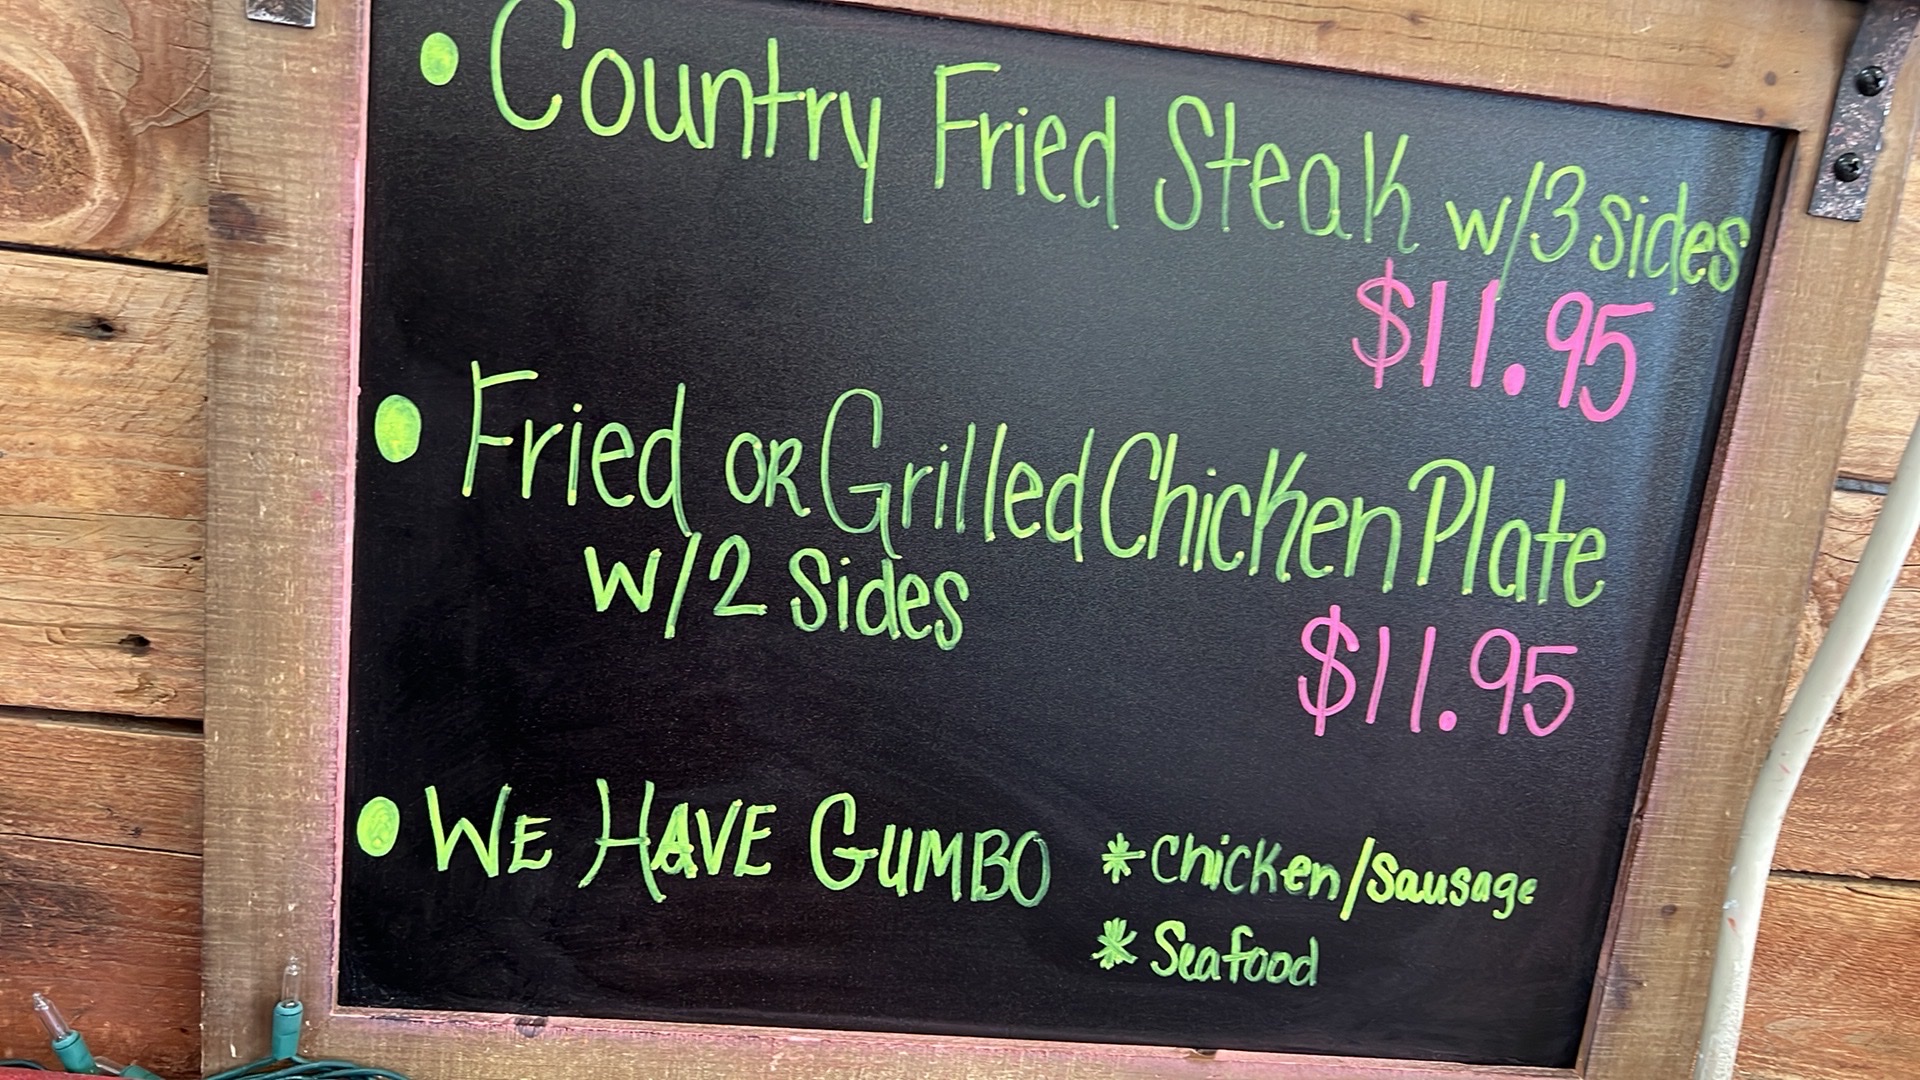 • Country Fried Steak w/3 sides
$11.95
• Fried OR Grilled Chicken Plate
w/2 Sides
$11.95
• WE HAVE GUMBO * Chicken/Sausage
* Seafood